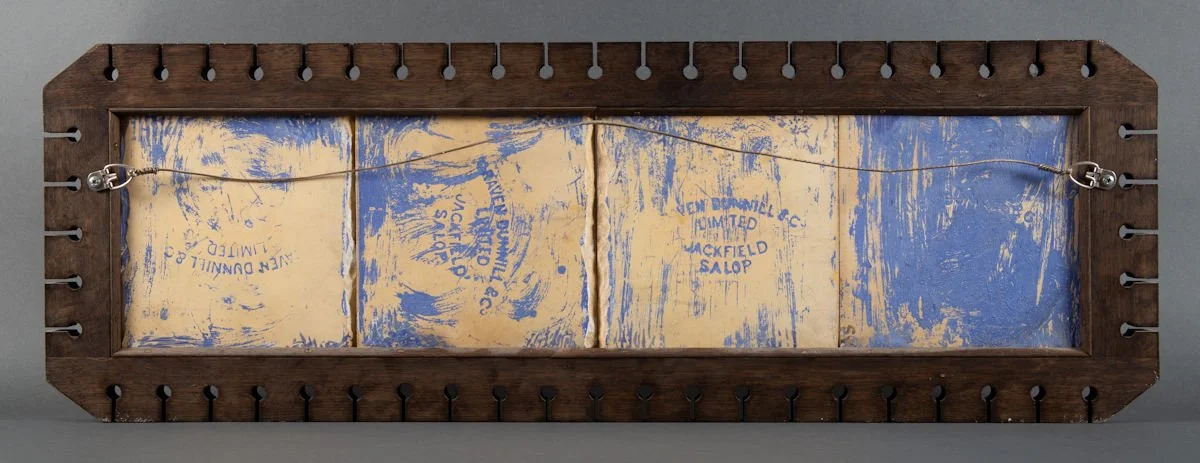 AVEN DUNNILL & C.
LIMITED
RAVEN DUNNILL & C.
LIMITED
JACKFIELD
SALOP
VEN DUNNILL & C.
LIMITED
JACKFIELD
SALOP